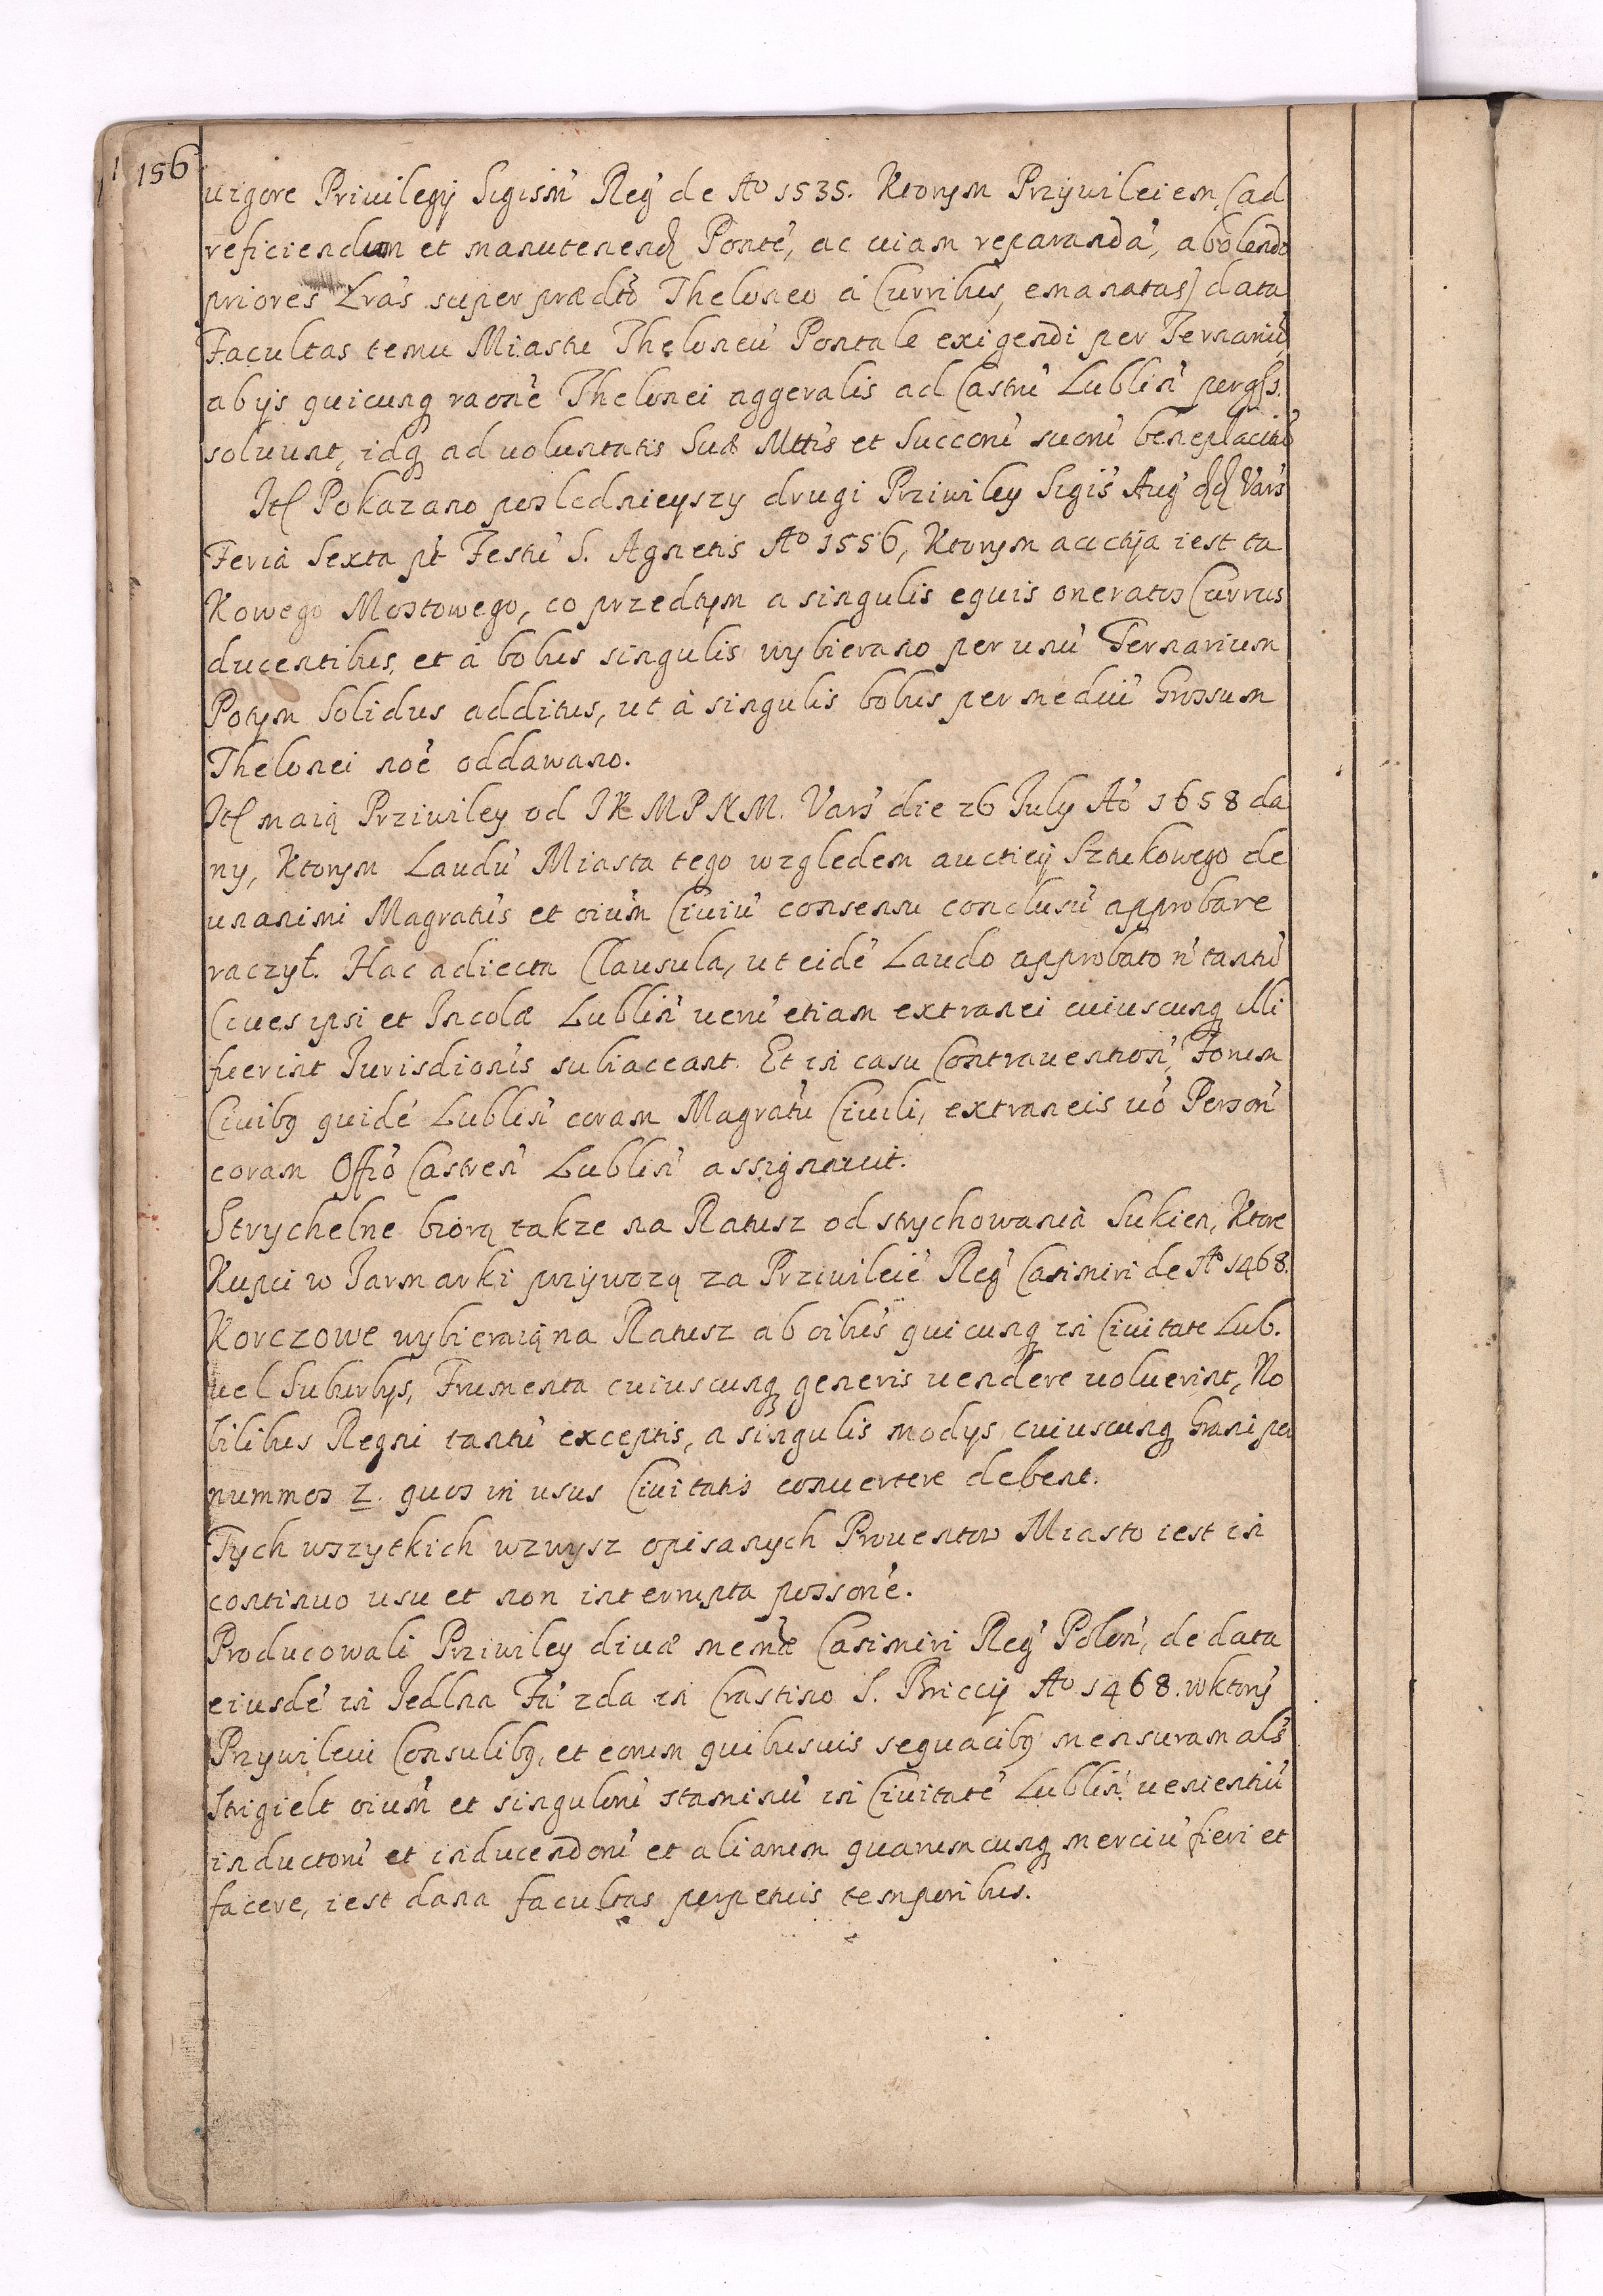 156
vigore Privilegij Sigism̃ Reg̃ de Aº 1535. Ktorym Przywileiem (ad
reficiendum et manutenend̃ Pontẽ, ac viam reparandã, abolendo
priores Lrãs super prædtõ Theloneo á Curribus emanatas) data
Facultas temu Miastu Theloneũ Pontale exigendi per Ternariũ
ab ijs quicunq raõne Thelonei aggeralis ad Castrũ Lublin̄ per gſs.
solvunt, idq ad voluntatis Suæ Mttis et Succorũ suorũ beneplacitũ
Itt Pokazano poslednieyszy drugi Priwiley Sigis̃ Aug̃ dd Vars̃
Feria Sexta pt̃ Festũ S. Agnetis Aº 1556, Ktorym auctija iest ta
Kowego Mostowego, co przedtym a singulis equis oneratos Currus
ducentibus, et á bobus singulis wybierano per unũ Ternarium
Potym Solidus additus, ut á singulis bobus per mediũ Grossum
Thelonei noẽ oddawano.
Itt maią Priwiley od JKMPNM. Vars̃ die 26 July Aõ 1658 da
ny, Ktorym Laudũ Miasta tego względem auctiey Sztukowego de
unanimi Magratũs et oium̃ Civiũ consensu conclusũ approbare
raczył. Hac adiecta Clausula, ut eidẽ Laudo approbato ñ tantũ
Cives ipsi et Incolæ Lublin̄ verũ etiam extranei cuiuscunq illi
fuerint Jurisdionis subiaceant. Et in casu Contraventioñ, Forum
Civibq quidẽ Lublin̄ coram Magratũ Civili, extraneis võ Person̄
coram Offõ Castren̄ Lublin̄ assignavit.
Strychelne biorą takze na Ratusz od strychowania Sukien, Ktore
Kupci w Jarmarki przywozą za Priwileiẽ Reg̃ Casimiri de Aº 1468.
Korczowe wybieraią na Ratusz ab oibũs quicunq in Civitate Lub.
vel Suburbys, Frumenta cuiuscunq generis vendere voluerint, No
bilibus Regni tantũ exceptis, a singulis modys cuiuscunq Grani per
nummos 2. quos in usus Civitatis convertere debent.
Tych wszytkich wzwysz opisanych Proventow Miasto iest in
continuo usu et non interrupta possonẽ.
Producowali Priwiley divæ memæ Casimiri Reg̃ Polon̄, de data
eiusdẽ in Jedlna Fã 2da in Crastino S. Briccij Aº 1468. w ktorỹ
Przywileui Consulibq, et eorum quibusvis sequacibq mensuram als̃
Strigielt oium̃ et singulorũ staminũ in Civitatẽ Lublin̄ venientiũ
inductorũ et inducendorũ et aliarum quarumcunq merciũ fieri et
facere, iest dana facultas perpetuis temporibus.